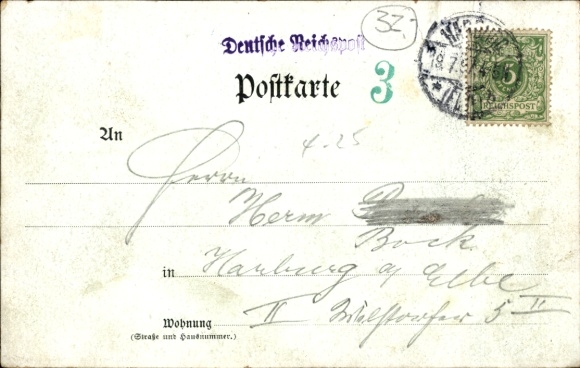 32,-
Deutsche Reichspost
Postkarte 3
5
REICHSPOST
An
4-25
Herrn
Herm
Bock
in Harburg a/ Elbe
II Wilstorfer 5 II
Wohnung
(Straße und Hausnummer.)